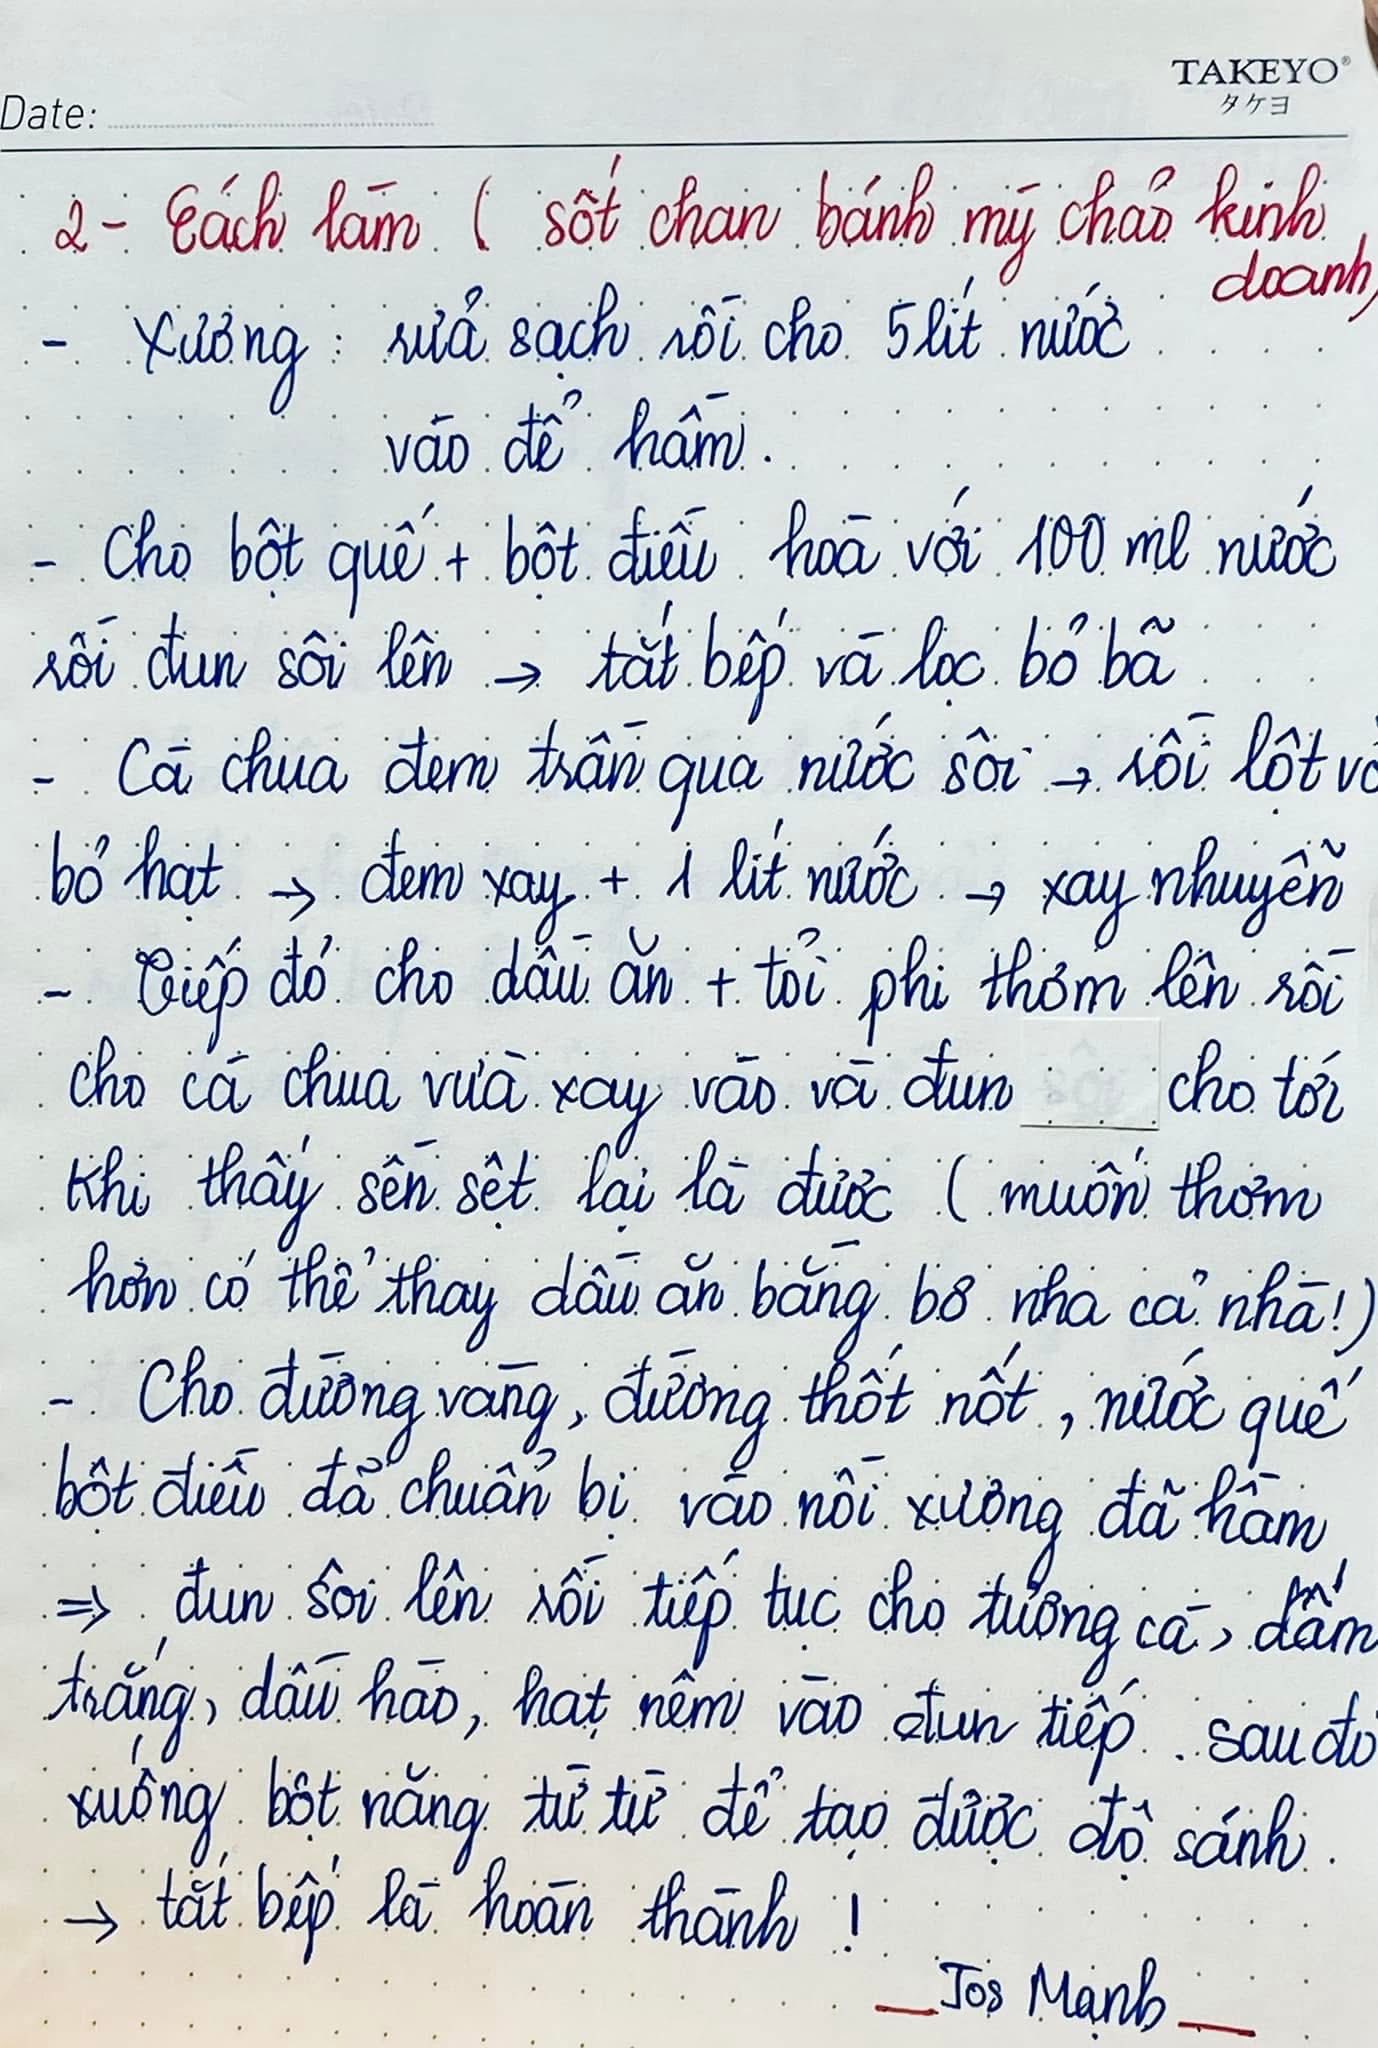 TAKEYO®
タケヨ
Date:
2- Cách làm ( sốt chan bánh mỳ chảo kinh
doanh)
- Xương : rửa sạch rồi cho 5 lít nước
vào để hầm.
- Cho bột quế + bột điều hoà với 100 ml nước
rồi đun sôi lên → tắt bếp và lọc bỏ bã
- Cà chua đem trần qua nước sôi → rồi lột vỏ
bỏ hạt → đem xay + 1 lít nước → xay nhuyễn
- Tiếp đó cho dầu ăn + tỏi phi thơm lên rồi
cho cà chua vừa xay vào và đun cho tới
khi thấy sền sệt lại là được ( muốn thơm
hơn có thể thay dầu ăn bằng bơ nha cả nhà!)
- Cho đường vàng, đường thốt nốt, nước quế
bột điều đã chuẩn bị vào nồi xương đã hầm
⇒ đun sôi lên rồi tiếp tục cho tương cà, dấm
trắng, dầu hào, hạt nêm vào đun tiếp. sau đó
xuống bột năng từ từ để tạo được độ sánh.
→ tắt bếp là hoàn thành !
— Jos Mạnh —